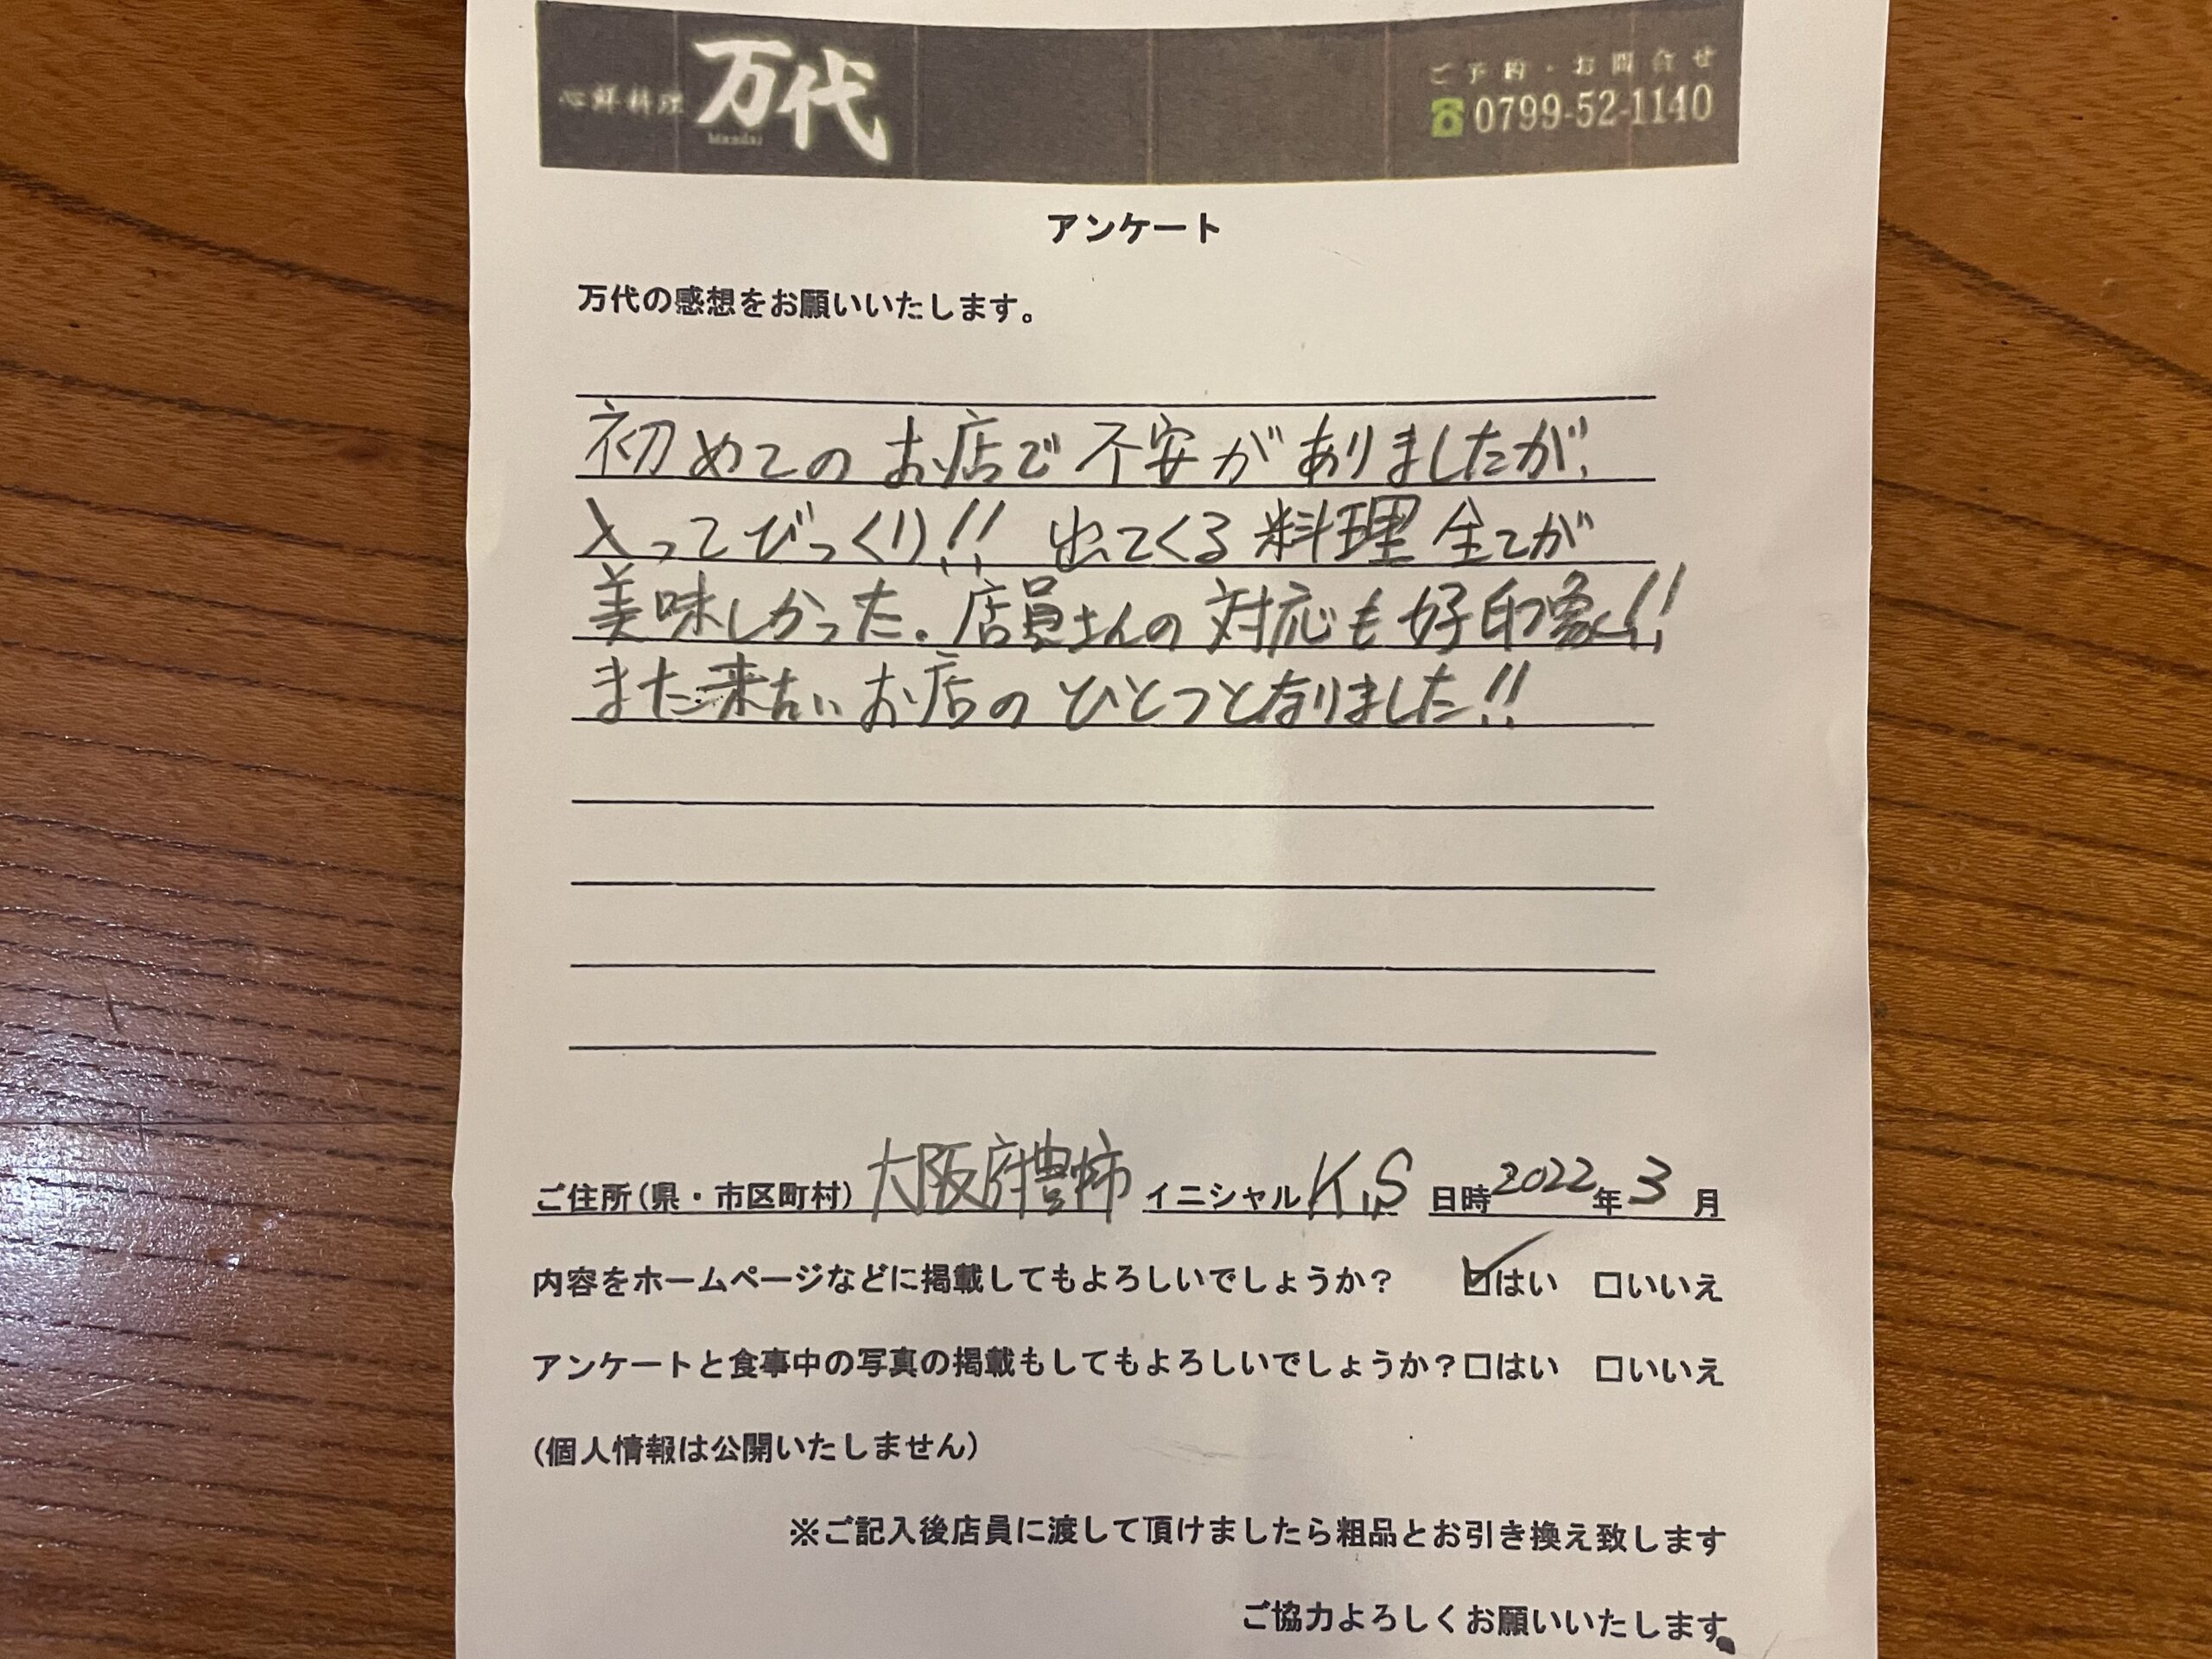 心鮮料理 万代
Mandai
ご予約・お問合せ
☎0799-52-1140
アンケート
万代の感想をお願いいたします。
初めてのお店で不安がありましたが、
入ってびっくり!! 出てくる料理全てが
美味しかった。店員さんの対応も好印象!!
また来たいお店のひとつとなりました!!
ご住所(県・市区町村) 大阪府豊 イニシャル K.S 日時 2022年 3 月
内容をホームページなどに掲載してもよろしいでしょうか? ☑はい □いいえ
アンケートと食事中の写真の掲載もしてもよろしいでしょうか?□はい □いいえ
(個人情報は公開いたしません)
※ご記入後店員に渡して頂けましたら粗品とお引き換え致します
ご協力よろしくお願いいたします。